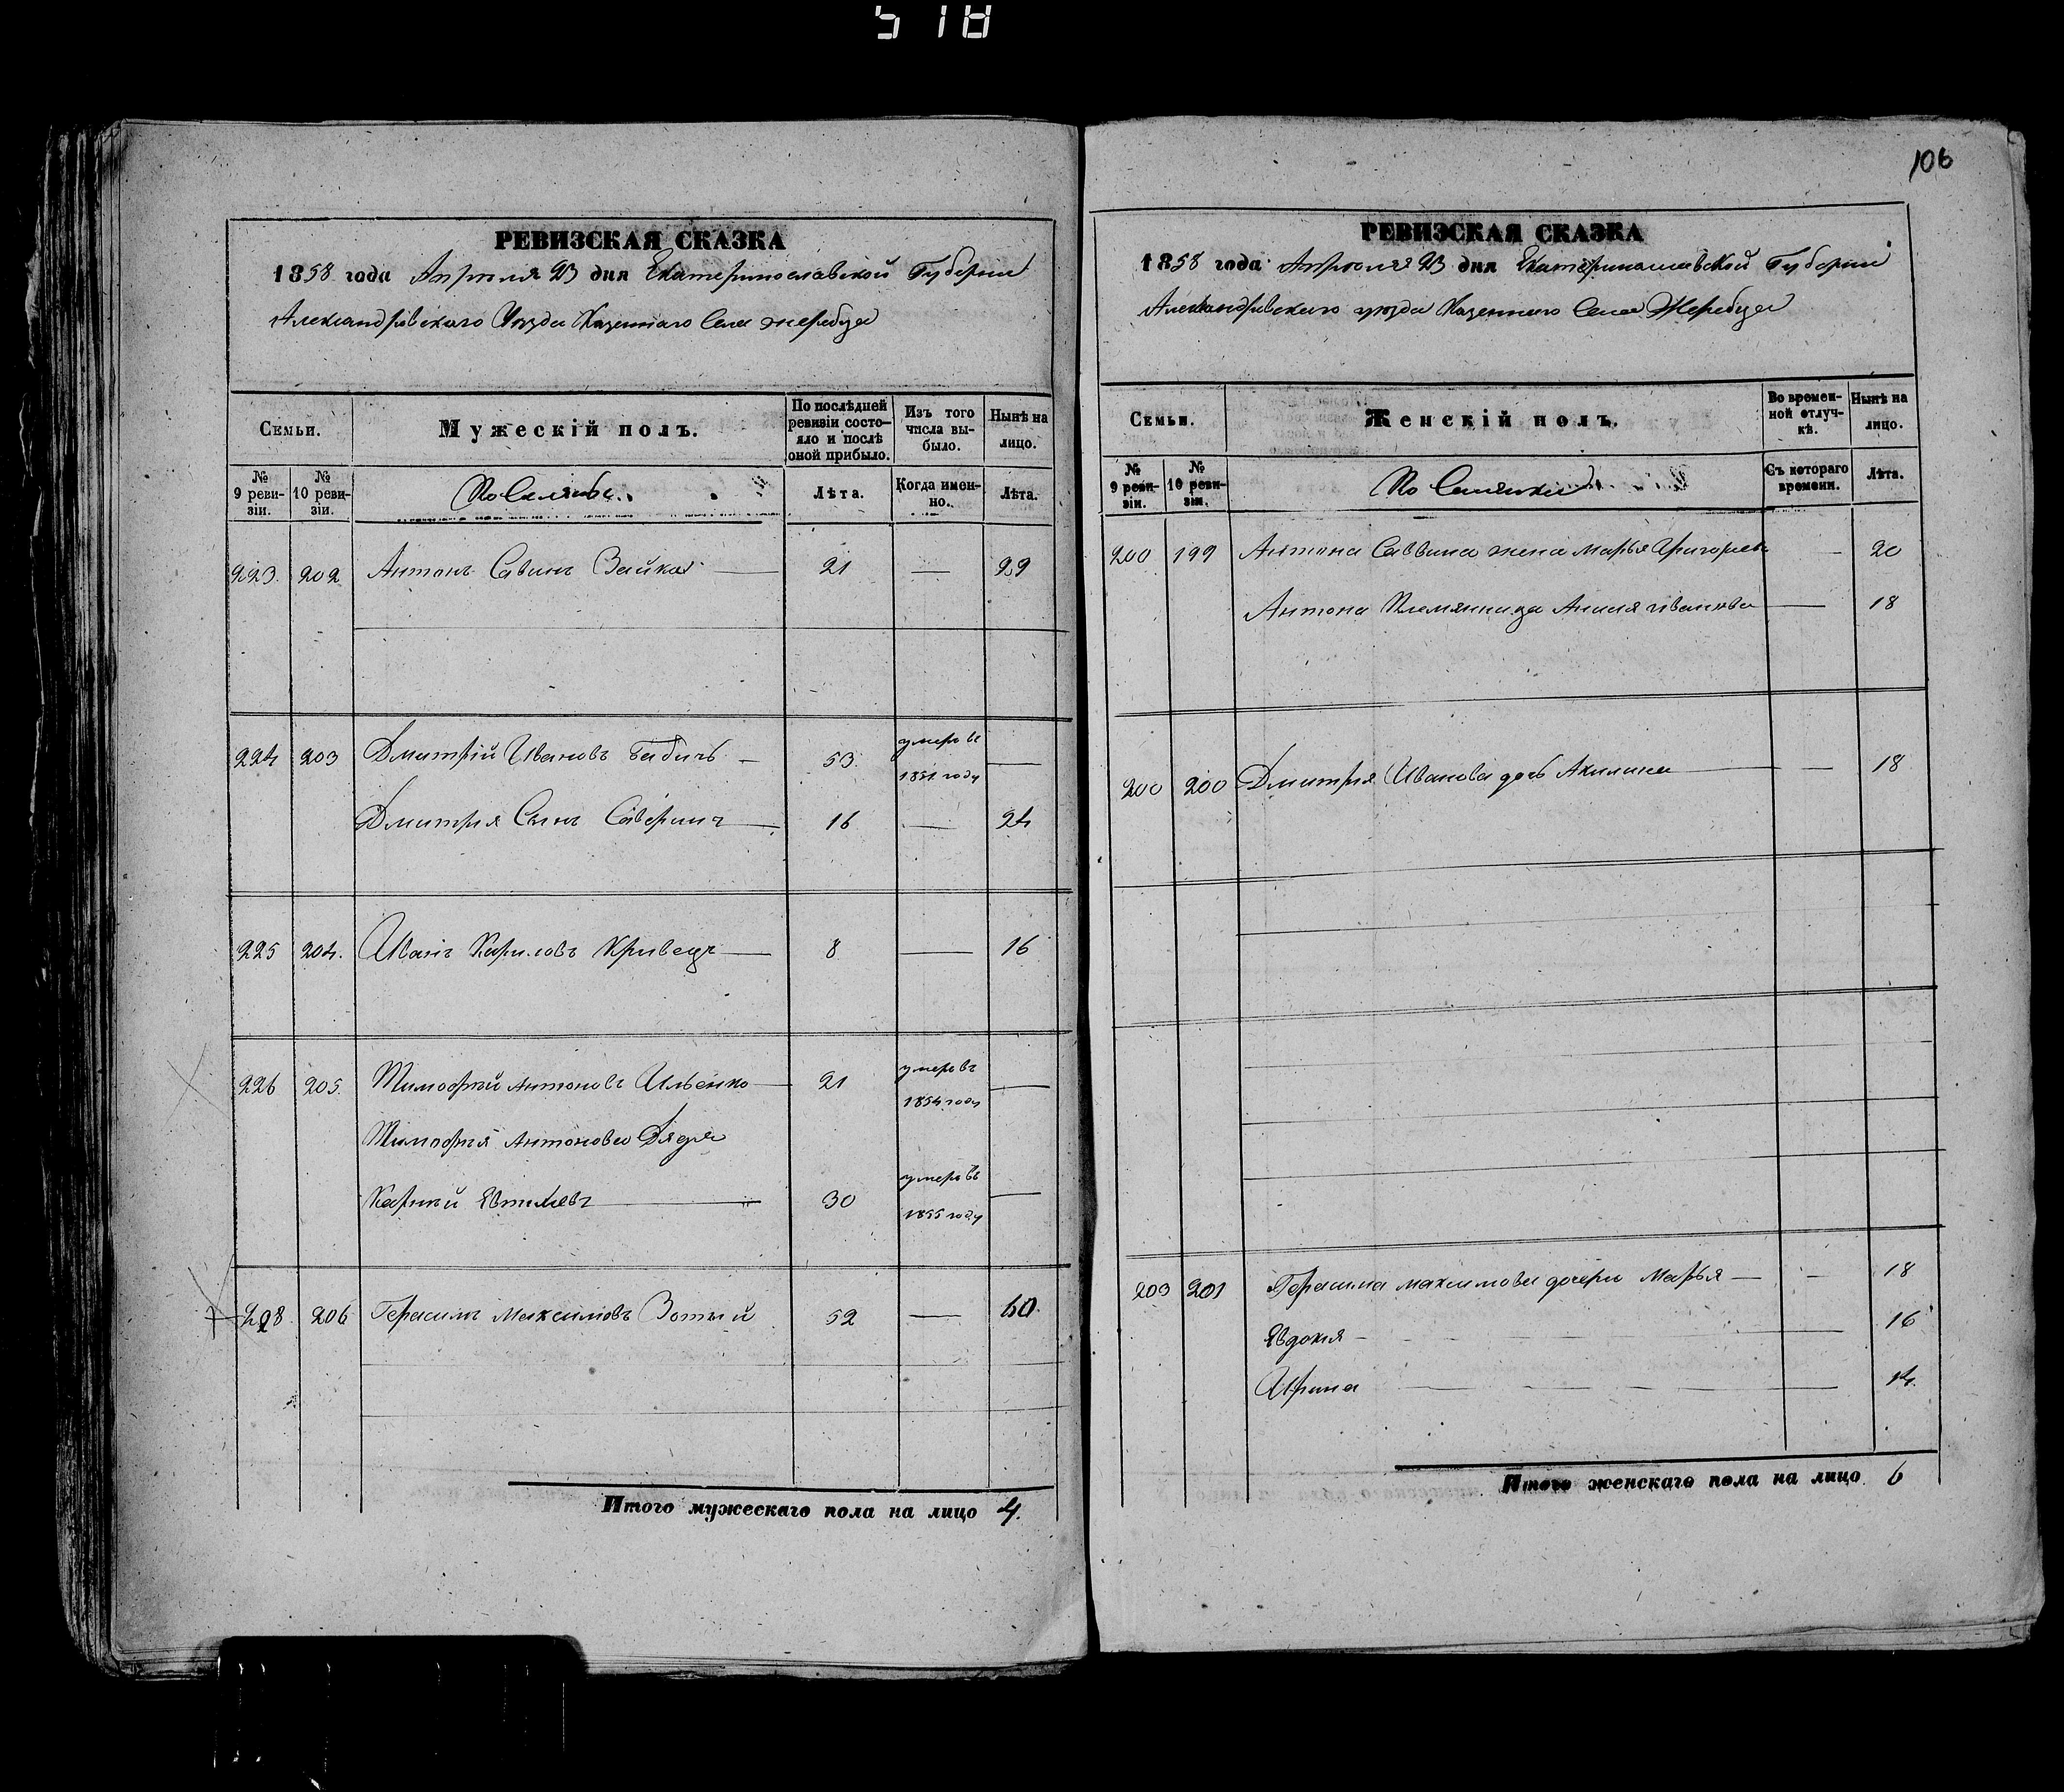 518
106
РЕВИЗСКАЯ СКАЗКА
1858 года Апреля 23 дня Екатеринославской Губернии
Александровского Уезда Казенного Села Жеребца
Семьи.
Мужескій полъ.
По послѣдней ревизіи состояло и послѣ оной прибыло.
Изъ того числа выбыло.
Нынѣ на лицо.
№ 9 ревизіи.
№ 10 ревизіи.
Поселяне.
Лѣта.
Когда именно.
Лѣта.
223. 202 Антонъ Савинъ Зайка 21 — 29
224 203 Дмитрій Ивановъ Бабичъ — 53 умеръ въ 1851 году —
Дмитрия Сынъ Саверинъ — 16 — 24
225 204. Иванъ Кириловъ Кривецъ — 8 — 16
226 205. Тимофей Антоновъ Ильенко — 21 умеръ въ 1854 году —
Тимофея Антонова Дядя
Карпий Евтиевъ — 30 умеръ въ 1855 году —
228 206 Герасимъ Максимовъ Зотый 52 — 60.
Итого мужескаго пола на лицо 4.
РЕВИЗСКАЯ СКАЗКА
1858 года Апреля 23 дня Екатеринославской Губернии
Александровского уезда Казенного Села Жеребца
Семьи.
Женскій полъ.
Во временной отлучкѣ.
Нынѣ на лицо.
№ 9 ревизіи.
№ 10 ревизіи.
Поселянки
Съ котораго времени.
Лѣта.
200 199 Антона Саввина жена Марья Григорьева — 20
Антона Племянница Анна Иванова — 18
200 200 Дмитрия Иванова дочь Акилина — 18
203 201 Герасима Максимова дочери Марья — 18
Евдокия — 16
Ирина — 14.
Итого женскаго пола на лицо 6